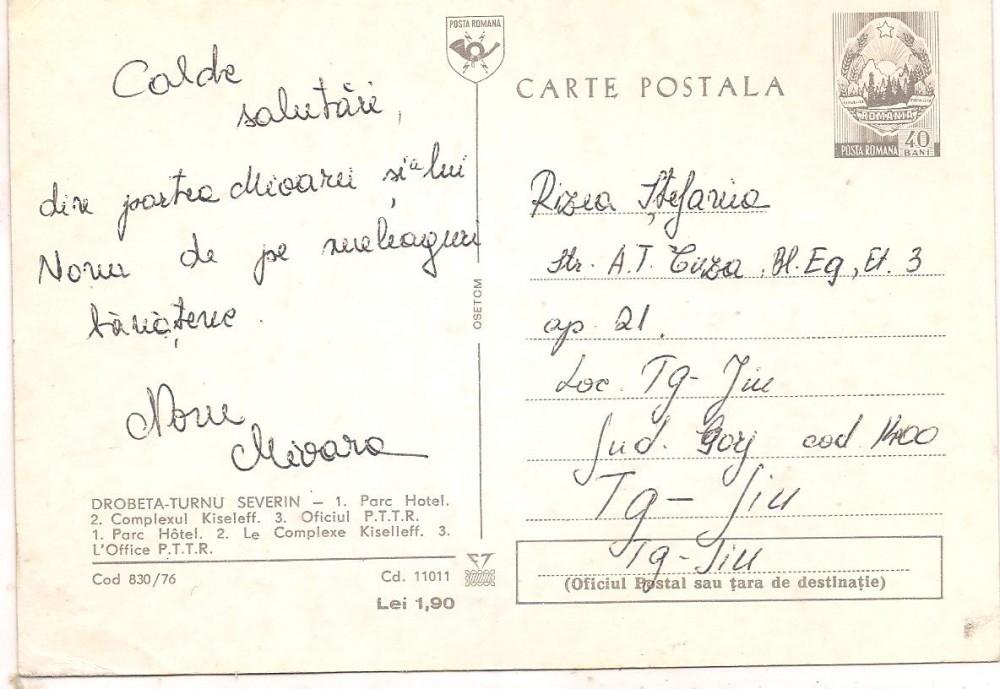 Calde
salutări,
din partea Mioarei și a lui
Nonu de pe meleaguri
bănățene.
Nonu
Mioara
DROBETA-TURNU SEVERIN – 1. Parc Hotel.
2. Complexul Kiseleff. 3. Oficiul P.T.T.R.
1. Parc Hôtel. 2. Le Complexe Kiselleff. 3.
L'Office P.T.T.R.
Cod 830/76
Cd. 11011
Lei 1,90
POSTA ROMANA
OSETCM
CARTE POSTALA
ROMANIA
POSTA ROMANA 40 BANI
Rizea Ștefania
Str. A.T. Cuza, Bl. Eg, Et. 3
ap. 21.
Loc. Tg-Jiu
Jud. Gorj cod 1400
Tg-Jiu
Tg-Jiu
(Oficiul Postal sau țara de destinație)